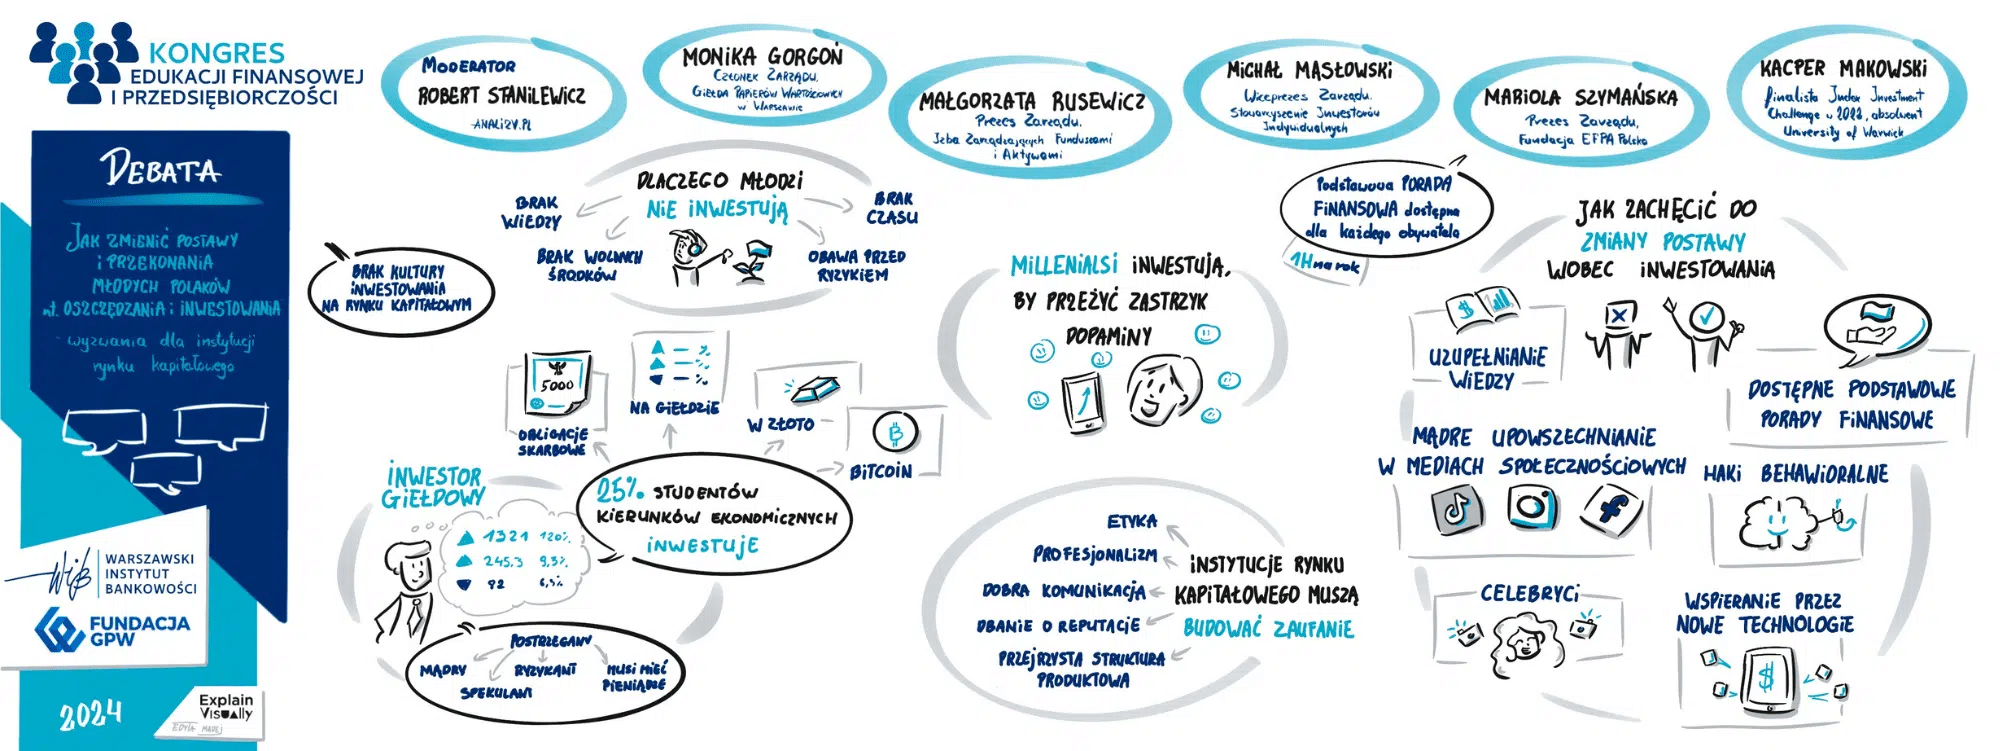 KONGRES
EDUKACJI FINANSOWEJ
I PRZEDSIĘBIORCZOŚCI
DEBATA
JAK ZMIENIĆ POSTAWY
I PRZEKONANIA
MŁODYCH POLAKÓW
nt. OSZCZĘDZANIA i INWESTOWANIA
- wyzwania dla instytucji
rynku kapitałowego
WIB
WARSZAWSKI
INSTYTUT
BANKOWOŚCI
FUNDACJA
GPW
2024
Explain
Visually
EDYTA MADEJ
MODERATOR
ROBERT STANILEWICZ
ANALIZY.PL
MONIKA GORGOŃ
CZŁONEK ZARZĄDU,
GIEŁDA PAPIERÓW WARTOŚCIOWYCH
W WARSZAWIE
MAŁGORZATA RUSEWICZ
Prezes Zarządu,
Izba Zarządzających Funduszami
i Aktywami
MICHAŁ MASŁOWSKI
Wiceprezes Zarządu,
Stowarzyszenie Inwestorów
Indywidualnych
MARIOLA SZYMAŃSKA
Prezes Zarządu,
Fundacja EFPA Polska
KACPER MAKOWSKI
finalista Index Investment
Challenge w 2022, absolwent
University of Warwick
DLACZEGO MŁODZI
NIE INWESTUJĄ
BRAK
WIEDZY
BRAK
CZASU
BRAK WOLNYCH
ŚRODKÓW
OBAWA PRZED
RYZYKIEM
BRAK KULTURY
INWESTOWANIA
NA RYNKU KAPITAŁOWYM
5000
OBLIGACJE
SKARBOWE
%
%
%
NA GIEŁDZIE
W ZŁOTO
BITCOIN
25% STUDENTÓW
KIERUNKÓW EKONOMICZNYCH
INWESTUJE
INWESTOR
GIEŁDOWY
1321 120%
245.3 9,3%
92 6,5%
POSTRZEGANY
MĄDRY
SPEKULANT
RYZYKANT
MUSI MIEĆ
PIENIĄDZE
MILLENIALSI INWESTUJĄ,
BY PRZEŻYĆ ZASTRZYK
DOPAMINY
INSTYTUCJE RYNKU
KAPITAŁOWEGO MUSZĄ
BUDOWAĆ ZAUFANIE
ETYKA
PROFESJONALIZM
DOBRA KOMUNIKACJA
DBANIE O REPUTACJE
PRZEJRZYSTA STRUKTURA
PRODUKTOWA
Podstawowa PORADA
FINANSOWA dostępna
dla każdego obywatela
1H na rok
JAK ZACHĘCIĆ DO
ZMIANY POSTAWY
WOBEC INWESTOWANIA
$
UZUPEŁNIANIE
WIEDZY
DOSTĘPNE PODSTAWOWE
PORADY FINANSOWE
MĄDRE UPOWSZECHNIANIE
W MEDIACH SPOŁECZNOŚCIOWYCH
HAKI BEHAWIORALNE
CELEBRYCI
WSPIERANIE PRZEZ
NOWE TECHNOLOGIE
$